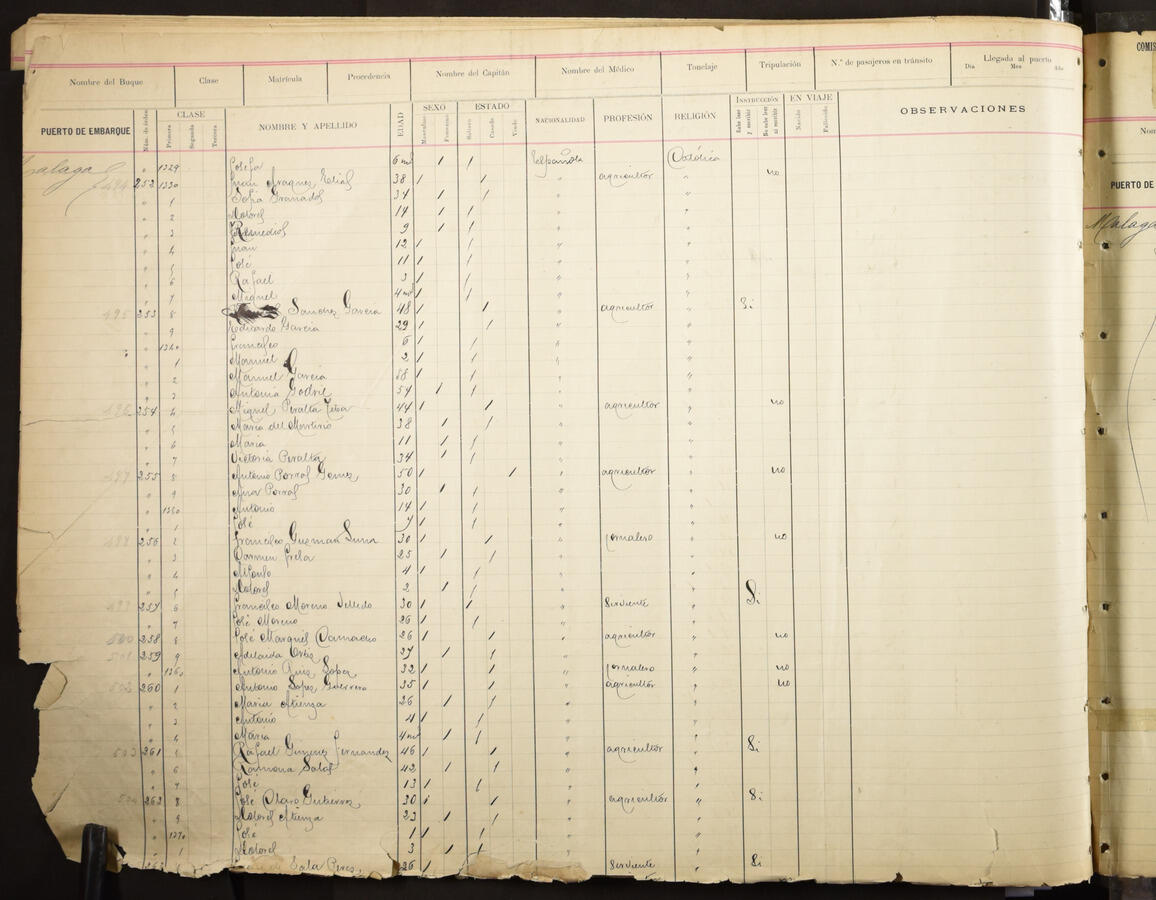 Nombre del Buque Clase Matrícula Procedencia Nombre del Capitán Nombre del Médico Tonelaje Tripulación N.º de pasajeros en tránsito Llegada al puerto
Dia Mes Año
PUERTO DE EMBARQUE Núm. de orden CLASE Primera Segunda Tercera NOMBRE Y APELLIDO EDAD SEXO Masculino Femenino ESTADO Soltero Casado Viudo NACIONALIDAD PROFESIÓN RELIGIÓN INSTRUCCIÓN Sabe leer y escribir No sabe leer ni escribir EN VIAJE Nacido Fallecido OBSERVACIONES
Malaga 1329 Josefa 6 ms / / Española Católica
494 252 1330 Juan 38 / / agricultor " no
" 1 Sofia Granados 34 / / "
" 2 Dolores 14 / / " "
" 3 Remedios 9 / / "
" 4 Juan 12 / / " "
" 5 José 11 / / " "
" 6 Rafael 3 / / " "
" 7 Miguel 4 ms / / " "
495 253 8 Sanchez Garcia 48 / / " agricultor " Si
" 9 Edicardo Garcia 29 / / " "
" 1340 Francisco 6 / / " "
" 1 Manuel 2 / / " "
" 2 Manuel Garcia 58 / / " "
" 3 Antonia 54 / / " "
496 254 4 Miguel Peralta 44 / / " agricultor " no
" 5 Maria del 38 / / " "
" 6 Maria 11 / / " "
" 7 Victoria Peralta 34 / / " "
497 255 8 Antonio Porras Gomez 50 / / " agricultor " no
" 9 Ana Porras 30 / / " "
" 1350 Antonio 14 / / " "
" 1 José 7 / / " "
498 256 2 Francisco Guzman Luna 30 / / " jornalero " no
" 3 Carmen 25 / / " "
" 4 Alfonso 4 / / " "
" 5 Dolores 2 / / " "
499 257 6 Francisco Moreno 30 / / " Sirviente " Si
" 7 José Moreno 26 / / " "
500 258 8 José Marques Camacho 26 / / " agricultor " no
501 259 9 Adelaida Ortiz 27 / / " "
" 1360 Antonio Ruiz Lopez 32 / / " jornalero " no
502 260 1 Antonio Lopez Guerrero 35 / / " agricultor " no
" 2 Maria Atienza 26 / / " "
" 3 Antonio 4 / / " "
" 4 Maria 4 ms / / " "
503 261 5 Rafael Gimenez Fernandez 46 / / " agricultor " Si
" 6 Ramona Salas 42 / / " "
" 7 José 13 / / " "
504 262 8 José Claro Gutierrez 30 / / " agricultor " Si
" 9 Dolores Atienza 23 / / " "
" 1370 José 1 / / " "
" 1 Dolores 3 / / " "
263 Perez 26 / " Sirviente " Si
COMIS
Nom
PUERTO DE
Malaga